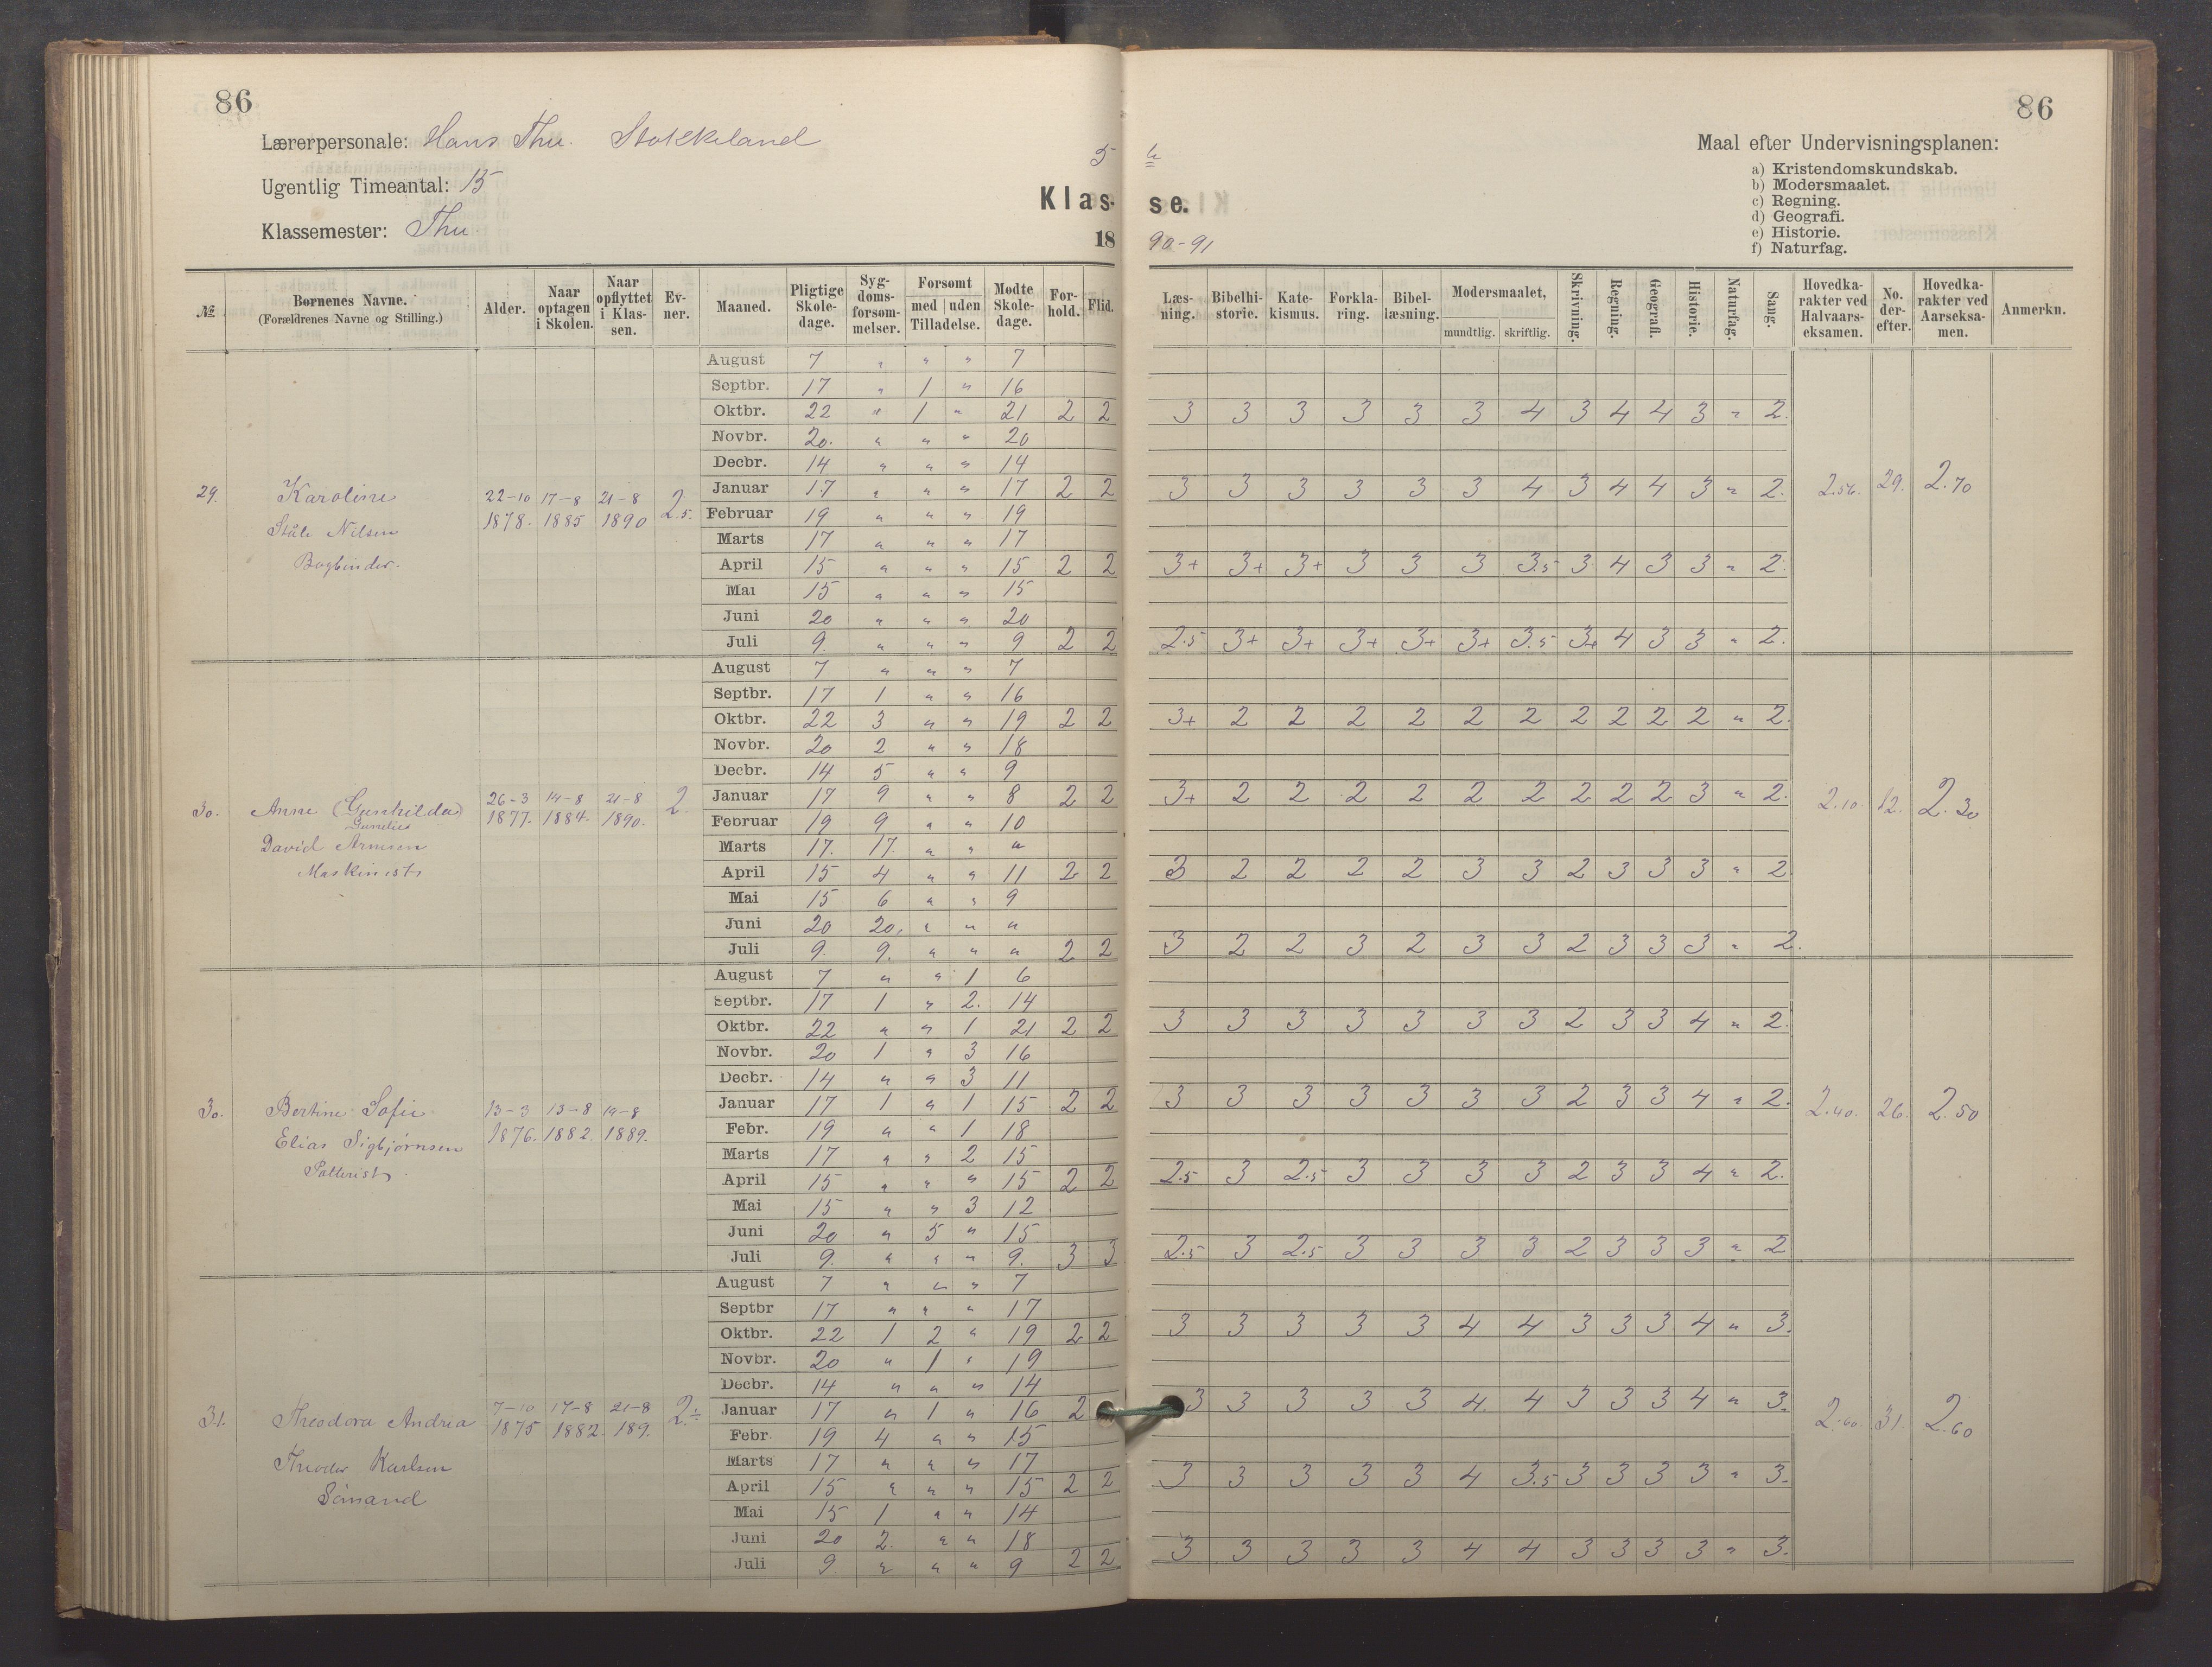 86
Lærerpersonale: Hans Thu. Stokkeland
Ugentlig Timeantal: 15
Klassemester: Thu
5
Klas-
18
№
Børnenes Navne.
(Forældrenes Navne og Stilling.)
Alder.
Naar optagen i Skolen.
Naar opflyttet i Klas-sen.
Ev-ner.
Maaned.
Pligtige Skole-dage.
Syg-doms-forsøm-melser.
Forsømt
med | uden
Tilladelse.
Mødte Skole-dage.
For-hold.
Flid.
29. Karoline
Ståle Nilsen
Bogbinder.
22-10 17-8 21-8
1878. 1885 1890
2.5.
August 7 " " " 7
Septbr. 17 " 1 " 16
Oktbr. 22 " 1 " 21 2 2
Novbr. 20. " " " 20
Decbr. 14 " " " 14
Januar 17 " " " 17 2 2
Februar 19 " " " 19
Marts 17 " " " 17
April 15 " " " 15 2 2
Mai 15 " " " 15
Juni 20 " " " 20
Juli 9. " " " 9 2 2
30. Anne (Gunhilda)
David Arnesen
Maskinist
26-3 14-8 21-8
1877. 1884. 1890.
2.
August 7 " " " 7
Septbr. 17 1 " " 16
Oktbr. 22 3 " " 19 2 2
Novbr. 20 2 " " 18
Decbr. 14 5 " " 9
Januar 17 9 " " 8 2 2
Februar 19 9 " " 10
Marts 17. 17. " " "
April 15 4 " " 11 2 2
Mai 15 6 " " 9
Juni 20 20. " " "
Juli 9. 9. " " " 2 2
30. Bertine Sofie
Elias Sigbjørnsen
13-3 13-8 19-8
1876. 1882. 1889.
August 7 " " 1 6
Septbr. 17 1 " 2. 14
Oktbr. 22 " " 1 21 2 2
Novbr. 20 1 " 3 16
Decbr. 14 " " 3 11
Januar 17 1 " 1 15 2 2
Febr. 19 " " 1 18
Marts 17 " " 2 15
April 15 " " " 15 2 2
Mai 15 " " 3 12
Juni 20 " 5 " 15
Juli 9. " " " 9. 3 3
31. Theodora Andria
Theodor Karlsen
Sömand
7-10 17-8 21-8
1875 1882. 189.
2.÷
August 7 " " " 7
Septbr 17 " " " 17
Oktbr. 22 1 2 " 19 2 2
Novbr. 20 " 1 " 19
Decbr. 14 " " " 14
Januar 17 " 1 " 16 2
Febr 19 4 " " 15
Marts 17 " " " 17
April 15 " " " 15 2 2
Mai 15 1 " " 14
Juni 20 2. " " 18
Juli 9. " " " 9 2 2
86
Maal efter Undervisningsplanen:
a) Kristendomskundskab.
b) Modersmaalet.
c) Regning.
d) Geografi.
e) Historie.
f) Naturfag.
se.
90-91
Læs-ning.
Bibelhi-storie.
Kate-kismus.
Forkla-ring.
Bibel-læsning.
Modersmaalet,
mundtlig. | skriftlig.
Skrivning.
Regning.
Geografi.
Historie.
Naturfag.
Sang.
Hovedka-rakter ved Halvaars-eksamen.
No. der-efter.
Hovedka-rakter ved Aarseksa-men.
Anmerkn.
3 3 3 3 3 3 4 3 4 4 3 " 2.
3 3 3 3 3 3 4 3 4 4 3 " 2. 2.56. 29. 2.70
3+ 3+ 3+ 3 3 3 3.5 3 4 3 3 " 2.
2.5 3+ 3+ 3+ 3+ 3+ 3.5 3+ 4 3 3 " 2.
3+ 2 2 2 2 2 2 2 2 2 2 " 2.
3+ 2 2 2 2 2 2 2 2 2 3 " 2. 2.10. 12. 2.30
3 2 2 2 2 3 3 2 3 3 3 " 2
3 2 2 3 2 3 3 2 3 3 3 " 2.
3 3 3 3 3 3 3 2 3 3 4 " 2.
3 3 3 3 3 3 3 2 3 3 4 " 2. 2.40. 26. 2.50
2.5 3 2.5 3 3 3 3 2 3 3 4 " 2.
2.5 3 2.5 3 3 3 3 2 3 3 3 " 2
3 3 3 3 3 4 4 3 3 3 4 " 3.
3 3 3 3 3 4. 4 3 3 3 4 " 3. 2.60. 31. 2.60
3 3 3 3 3 4 3.5 3 3 3 3 " 3.
3 3 3 3 3 4 4 3 3 3 3 " 3.